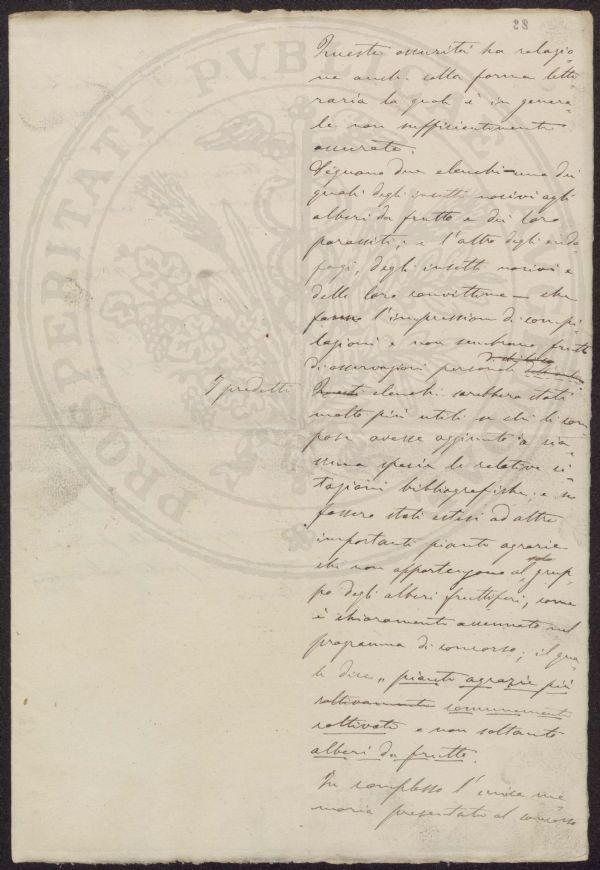 28
PROSPERITATI PVBLICAE
Queste oscurità ha relazio
ne anche colla forma lette
raria la quale è in genera
le non sufficientemente
accurata.
Seguono due elenchi uno dei
quali degli insetti nocivi agli
alberi da frutto e dei loro
parassiti; e l'altro degli endo
fagi, degli insetti nocivi e
delle loro convittime che
fanno l'impressione di compi
lazioni e non sembrano frutto
di osservazioni personali
I predetti
Questi elenchi sarebbero stati
molto più utili se chi li com
pose avesse aggiunto a cia
scuna specie le relative ci
tazioni bibliografiche; e se
fossero stati estesi ad altre
importanti piante agrarie
che non appartengono al grup
po degli alberi fruttiferi, come
è chiaramente accennato nel
programma di concorso; il qua
le dice „ piante agrarie più
coltivamente comunemente
coltivate e non soltanto
alberi da frutto.
In complesso l'unica me
moria presentata al concorso